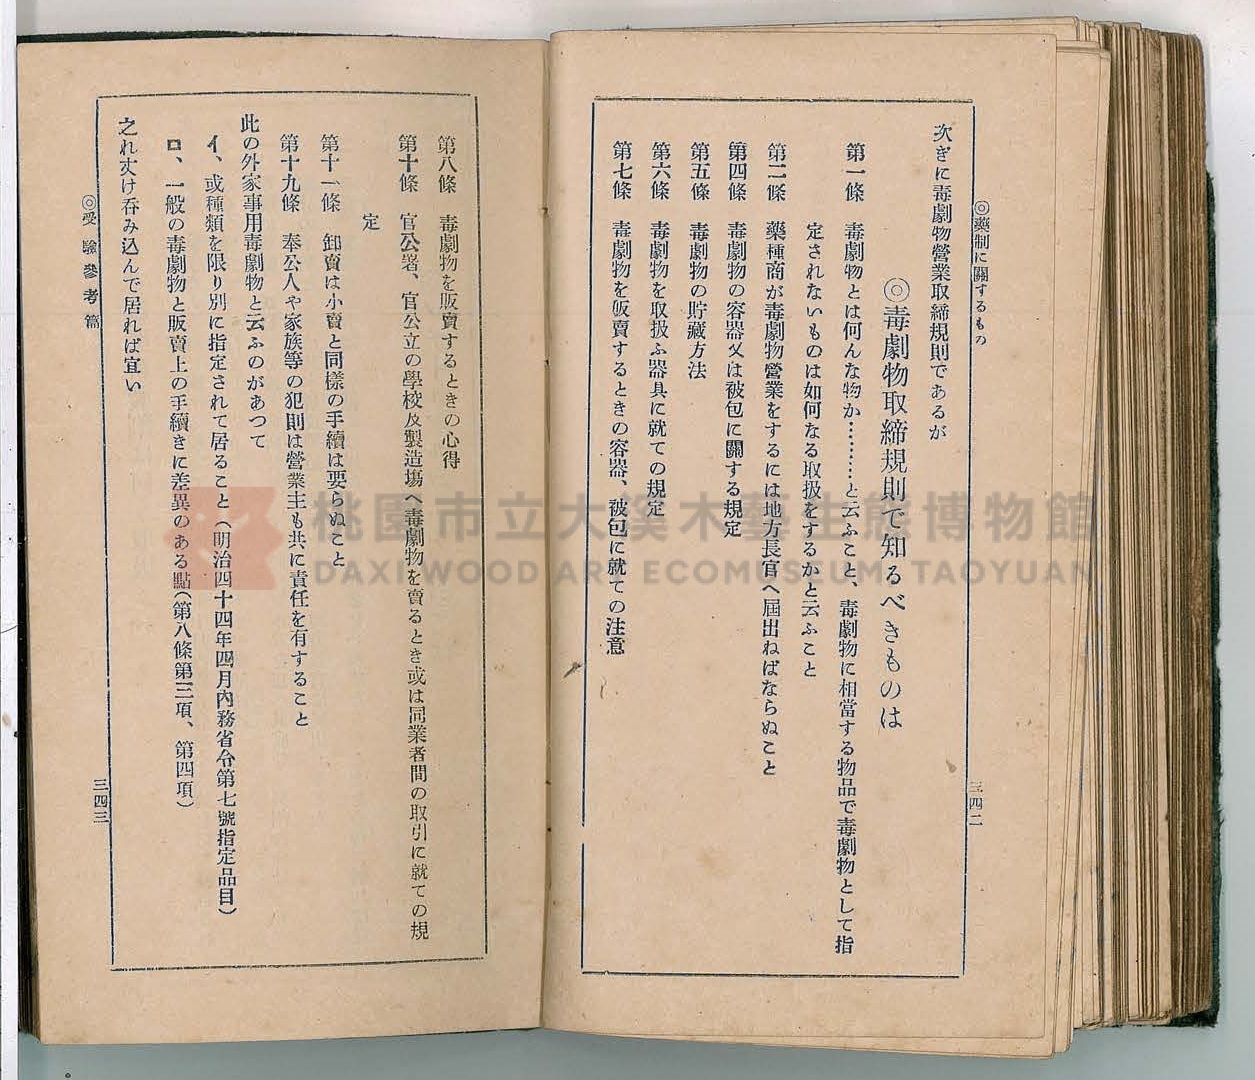 ◎藥制に關するもの
次ぎに毒劇物營業取締規則であるが
◎毒劇物取締規則で知るべきものは
第一條 毒劇物とは何んな物か………と云ふこと、毒劇物に相當する物品で毒劇物として指
定されないものは如何なる取扱をするかと云ふこと
第二條 藥種商が毒劇物營業をするには地方長官へ屆出ねばならぬこと
第四條 毒劇物の容器又は被包に關する規定
第五條 毒劇物の貯藏方法
第六條 毒劇物を取扱ふ器具に就ての規定
第七條 毒劇物を販賣するときの容器、被包に就ての注意
三四二
第八條 毒劇物を販賣するときの心得
第十條 官公署、官公立の學校及製造塲へ毒劇物を賣るとき或は同業者間の取引に就ての規
定
第十一條 卸賣は小賣と同樣の手續は要らぬこと
第十九條 奉公人や家族等の犯則は營業主も共に責任を有すること
此の外家事用毒劇物と云ふのがあつて
イ、或種類を限り別に指定されて居ること（明治四十四年四月內務省令第七號指定品目）
ロ、一般の毒劇物と販賣上の手續きに差異のある點（第八條第三項、第四項）
之れ丈け呑み込んで居れば宜い
◎受驗參考篇
三四三
桃園市立大溪木藝生態博物館
DAXI WOOD ART ECOMUSEUM, TAOYUAN